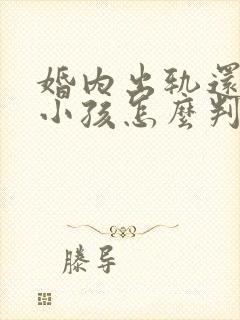 婚内出轨還
小孩怎麼判
滕导